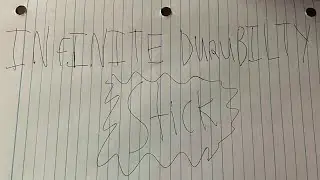 INFINITE DURUBILTY
STICK